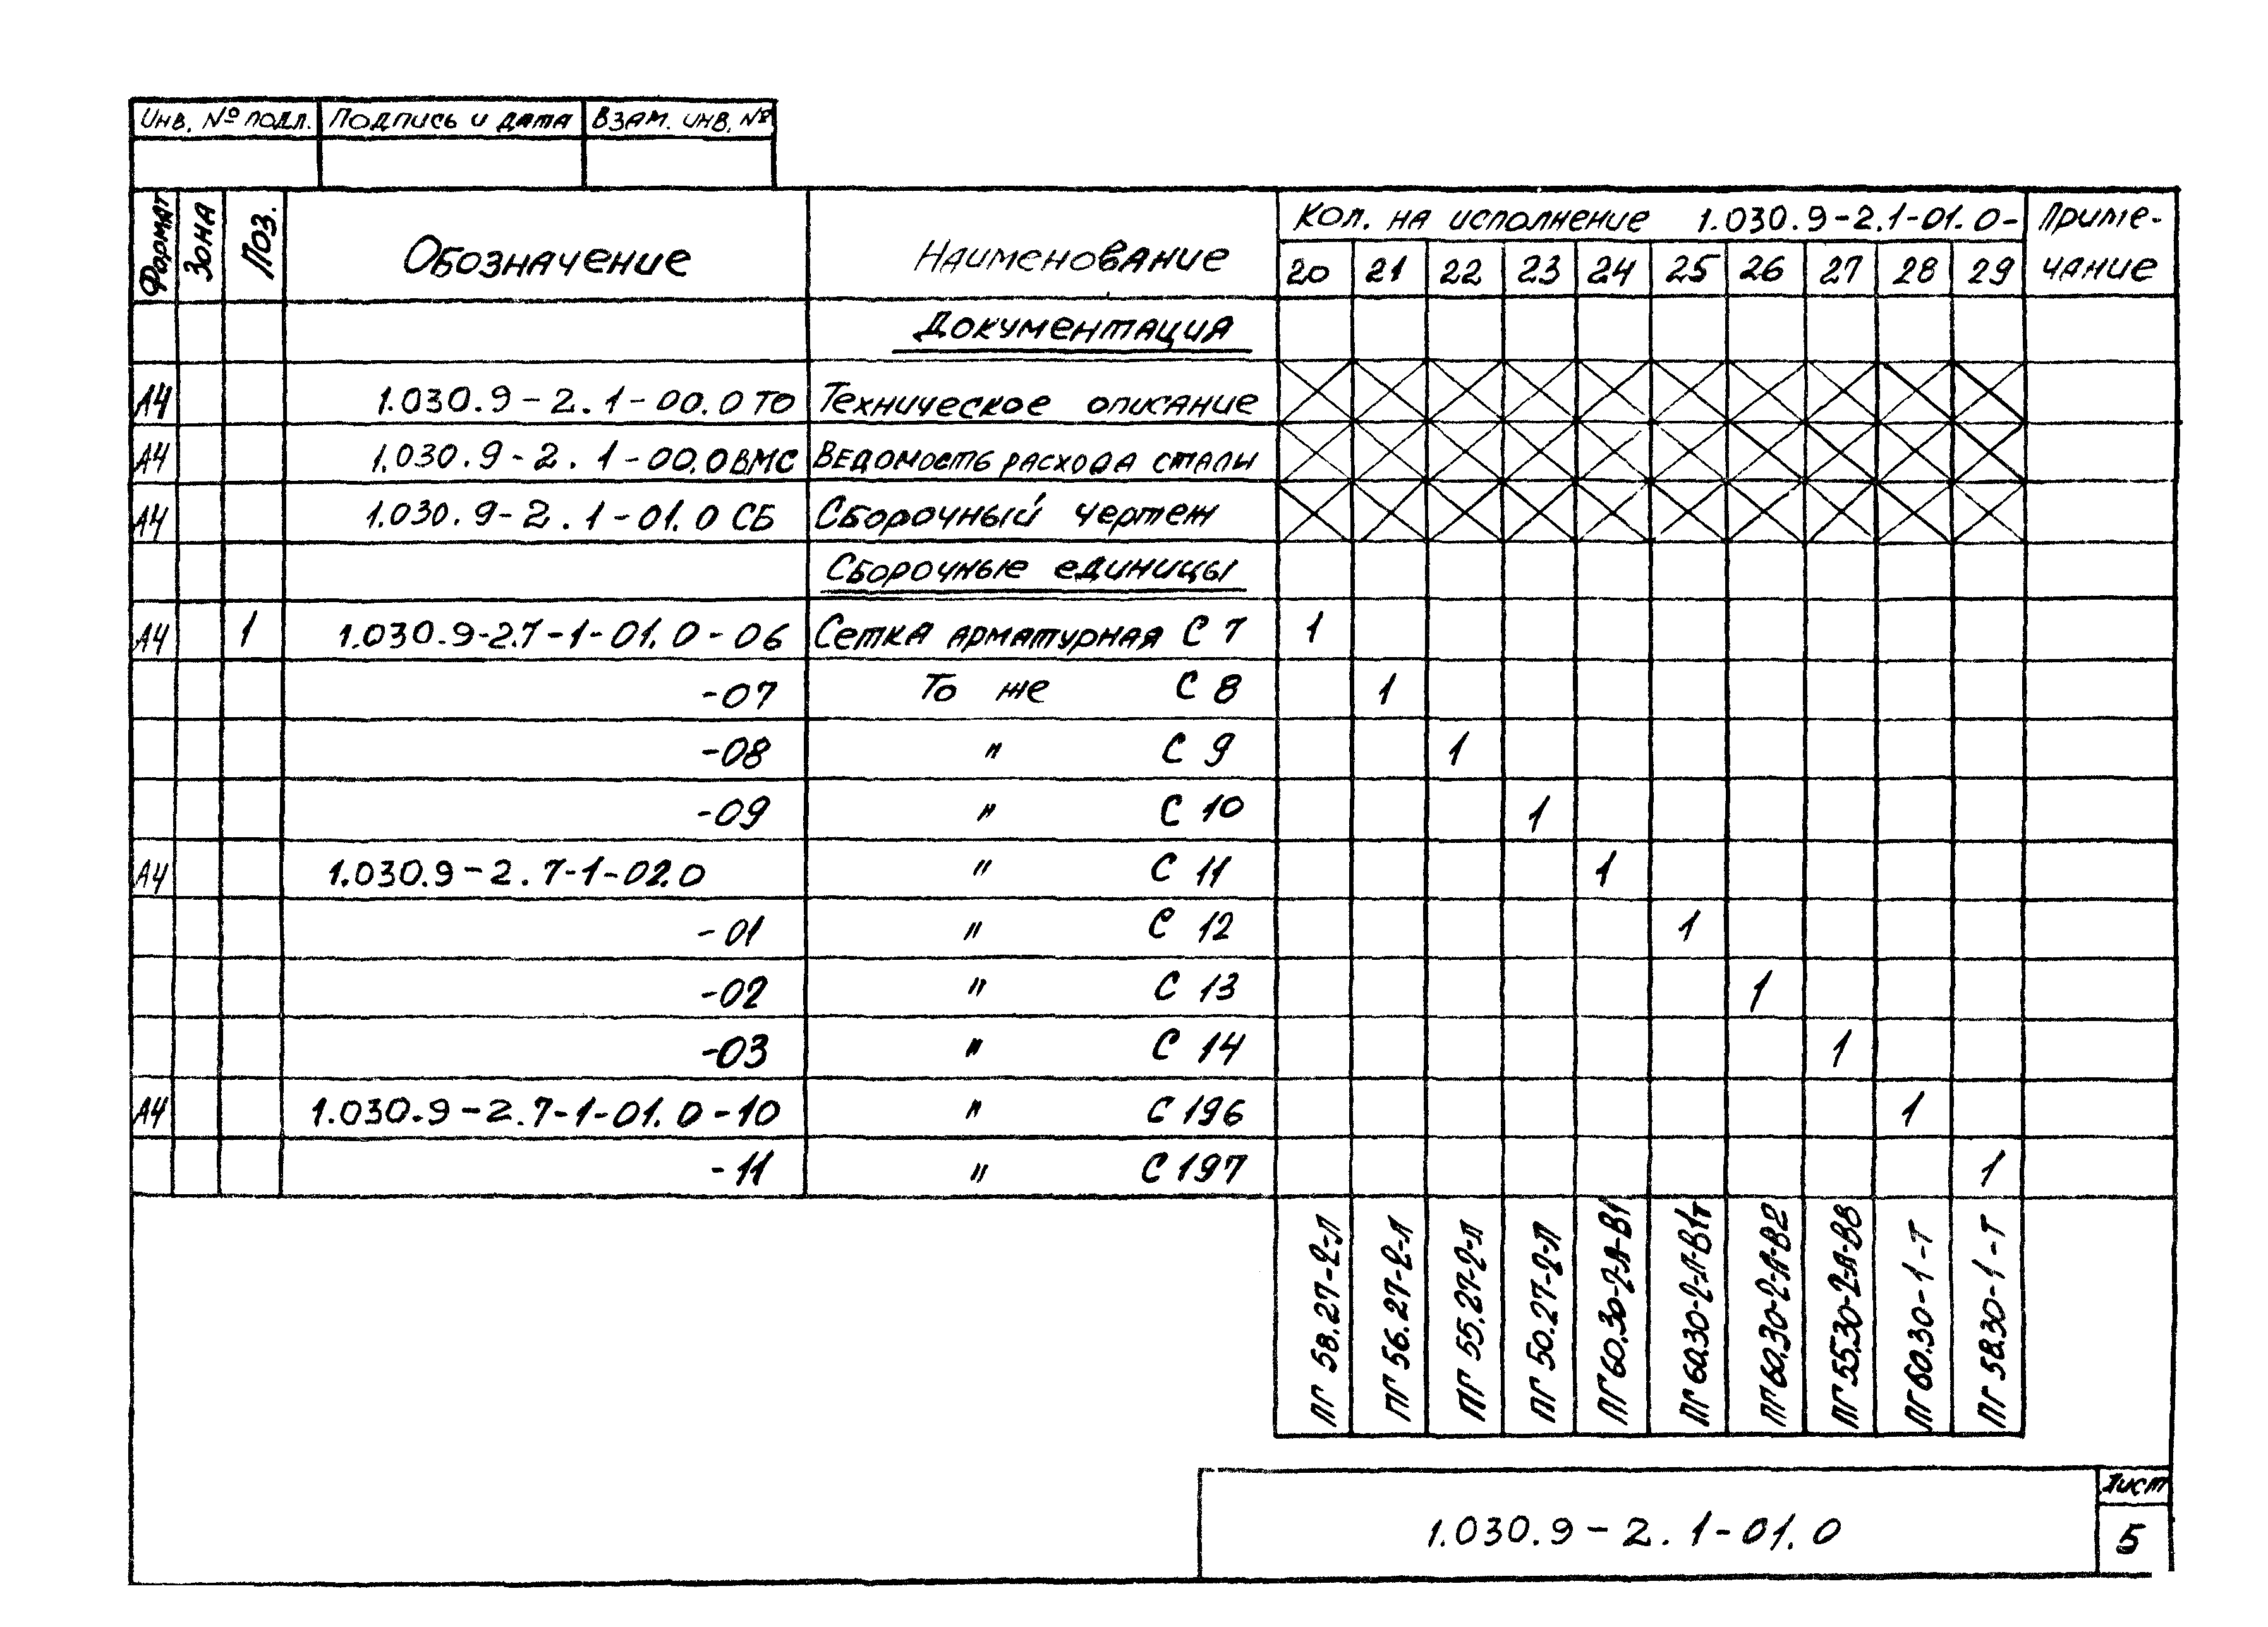 Инв. № подл. Подпись и дата Взам. инв. №
Формат Зона Поз. Обозначение Наименование Кол. на исполнение 1.030.9-2.1-01.0- Приме-
20 21 22 23 24 25 26 27 28 29 чание
Документация
А4 1.030.9-2.1-00.0 ТО Техническое описание
А4 1.030.9-2.1-00.0 ВМС Ведомость расхода стали
А4 1.030.9-2.1-01.0 СБ Сборочный чертеж
Сборочные единицы
А4 1 1.030.9-2.7-1-01.0-06 Сетка арматурная С 7 1
-07 То же С 8 1
-08 " С 9 1
-09 " С 10 1
А4 1.030.9-2.7-1-02.0 " С 11 1
-01 " С 12 1
-02 " С 13 1
-03 " С 14 1
А4 1.030.9-2.7-1-01.0-10 " С 196 1
-11 " С 197 1
ПГ 58.27-2-Л
ПГ 56.27-2-Л
ПГ 55.27-2-Л
ПГ 50.27-2-Л
ПГ 60.30-2-Л-В1
ПГ 60.30-2-Л-В1т
ПГ 60.30-2-Л-В2
ПГ 55.30-2-Л-В8
ПГ 60.30-1-Т
ПГ 58.30-1-Т
1.030.9-2.1-01.0
Лист
5